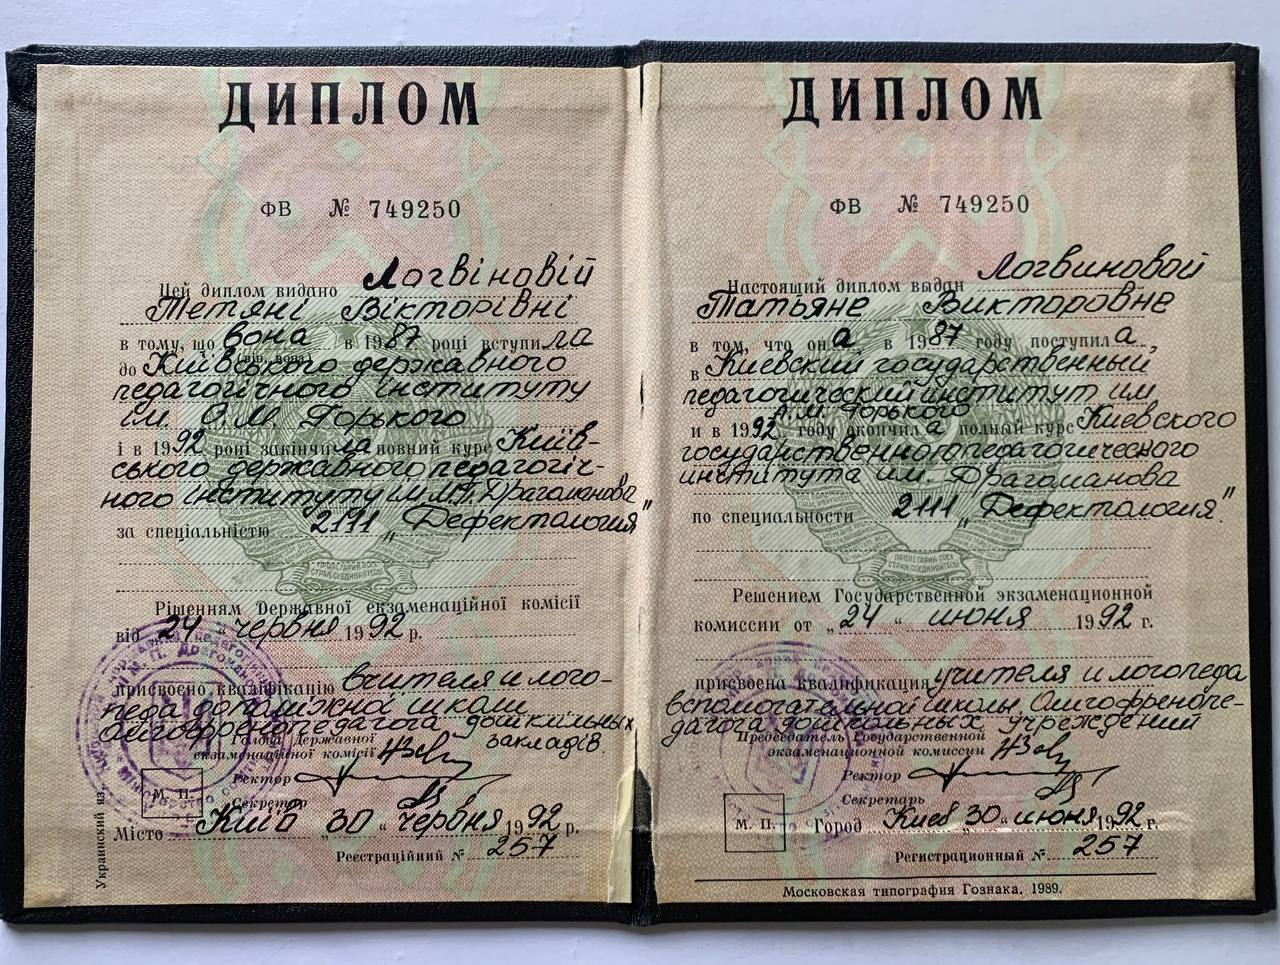 ДИПЛОМ
ФВ № 749250
Цей диплом видано Логвіновій
Тетяні Вікторівні
в тому, що вона в 1987 році вступила
(він, вона)
до Київського державного
педагогічного інституту
ім. О.М. Горького
і в 1992 році закінчила повний курс Київ-
ського державного педагогіч-
ного інституту ім. М.П. Драгоманова
за спеціальністю 2111 „Дефектология"
ПРОЛЕТАРИИ ВСЕХ
СТРАН, СОЕДИНЯЙТЕСЬ!
Рішенням Державної екзаменаційної комісії
від „24" червня 1992 р.
присвоєно кваліфікацію вчителя и лого-
педа допоміжної школи
Олигофренопедагога дошкільных
закладів.
Голова Державної
екзаменаційної комісії
Ректор
Секретар
М. П.
Місто Київ „30" червня 1992 р.
Реєстраційний № 257
Украинский яз.
ДИПЛОМ
ФВ № 749250
Настоящий диплом выдан Логвиновой
Татьяне Викторовне
в том, что она в 1987 году поступила
в Киевский государственный
педагогический институт им
А.М. Горького
и в 1992 году окончила полный курс Киевского
государственного педагогического
института им. Драгоманова
по специальности 2111 „Дефектология".
ПРОЛЕТАРИИ ВСЕХ
СТРАН, СОЕДИНЯЙТЕСЬ!
Решением Государственной экзаменационной
комиссии от „24" июня 1992 г.
присвоена квалификация учителя и логопеда
вспомогательной школы. Олигофренопе-
дагога дошкольных учреждений
Председатель Государственной
экзаменационной комиссии
Ректор
Секретарь
М. П.
Город Киев „30" июня 1992 г.
Регистрационный № 257
Московская типография Гознака. 1989.